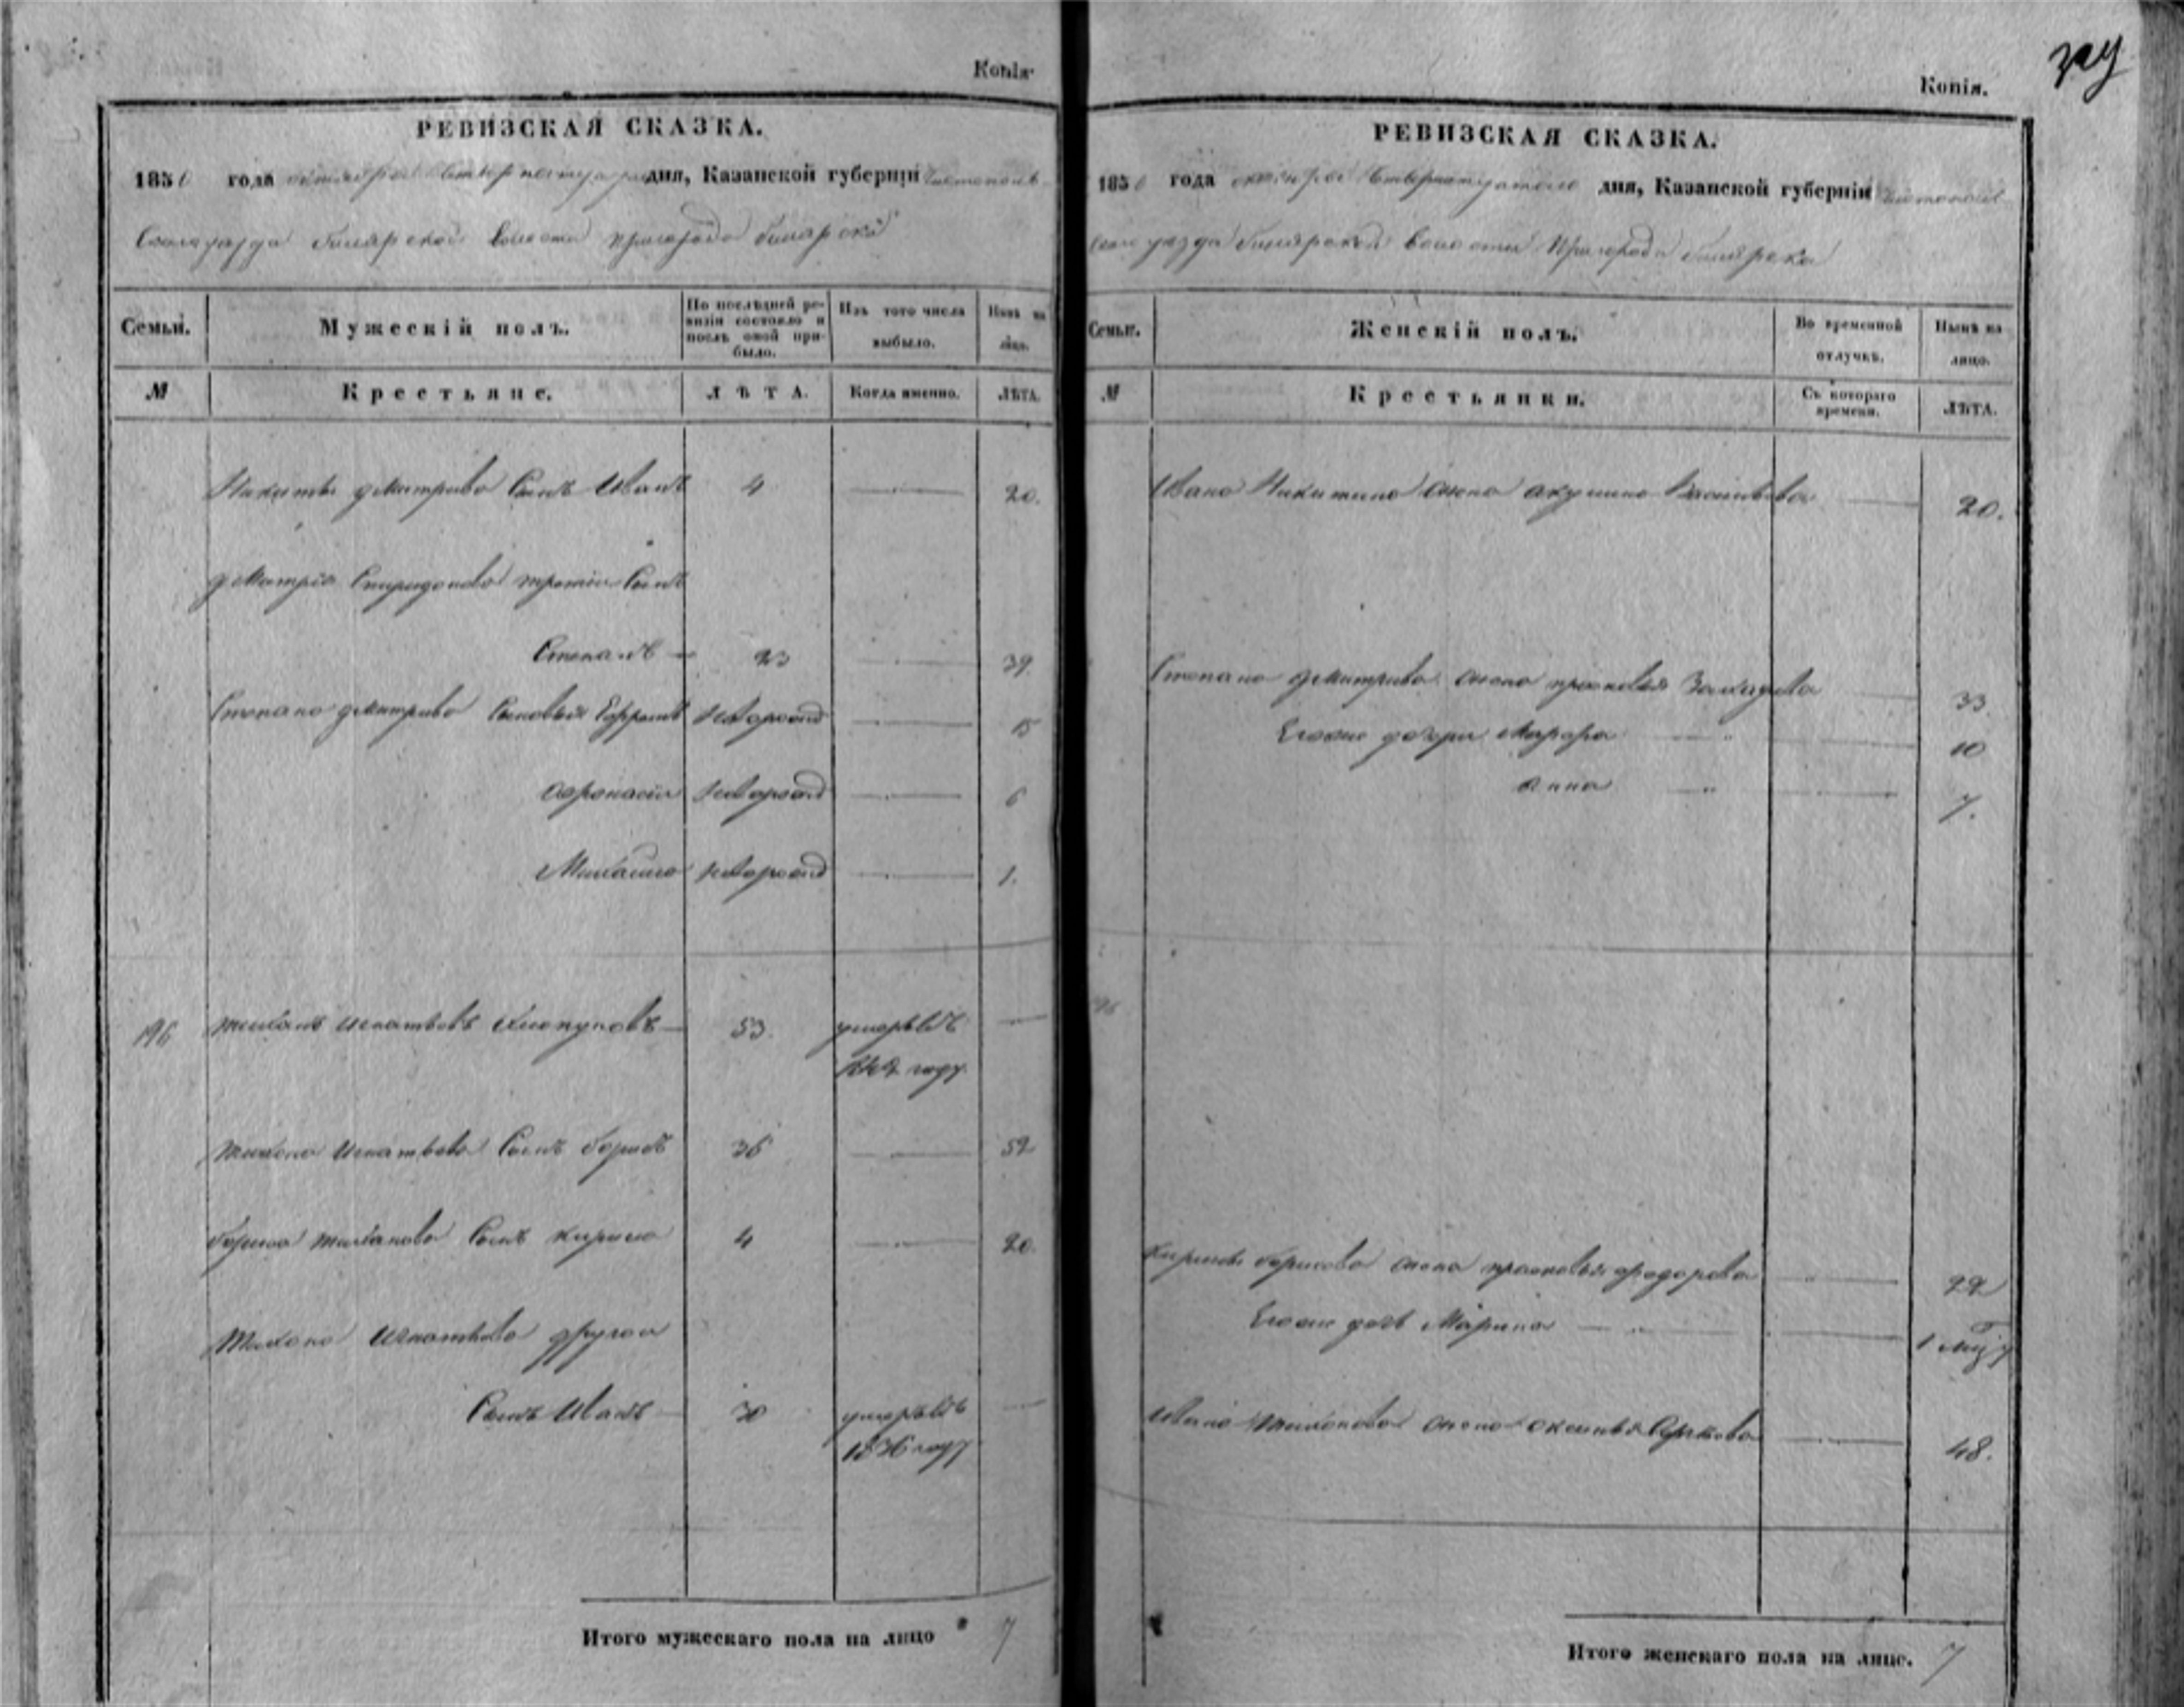 Копія
РЕВИЗСКАЯ СКАЗКА.
1850 года октября Четвертагонадесять дня, Казанской губерніи Чистополь
скаго уезда Билярской волости пригорода билярска
Семьи.
Мужескій полъ.
По послѣдней ре-
визіи состояло и
послѣ оной при-
было.
Изъ того числа
выбыло.
Нынѣ на
лицо.
№
Крестьяне.
ЛѢТА.
Когда именно.
ЛѢТА.
Никиты дмитриева Сынъ Иванъ 4 20.
дмитрія Спиридонова третій Сынъ
Степанъ 23 39.
Степана дмитриева Сыновья Ефремъ новорожд 15
Афонасій новорожд 6
Михайло новорожд 1.
196 тихонъ игнатьевъ 53. умеръ въ
году
тихона игнатьева Сынъ борисъ 36 52
бориса тихонова Сынъ кирило 4 20.
тихона игнатьева другой
Сынъ Иванъ 30 умеръ въ
1836 году
Итого мужескаго пола на лицо 7
Копія.
РЕВИЗСКАЯ СКАЗКА.
1850 года октября дня, Казанской губерніи Чистополь
скаго уезда билярской волости Пригорода билярска
Семьи.
Женскій полъ.
Во временной
отлучкѣ.
Нынѣ на
лицо.
№
Крестьянки.
Съ котораго
времени.
ЛѢТА.
Ивана Никитина жена акулина Васильева 20.
Степана дмитриева жена прасковья 33.
Егоже дочери Марфа 10
анна 7.
196
Кирилы борисова жена прасковья федорова 22
Егоже дочь Марина 1
Ивана тихонова жена аксинья 48.
Итого женскаго пола на лице. 7